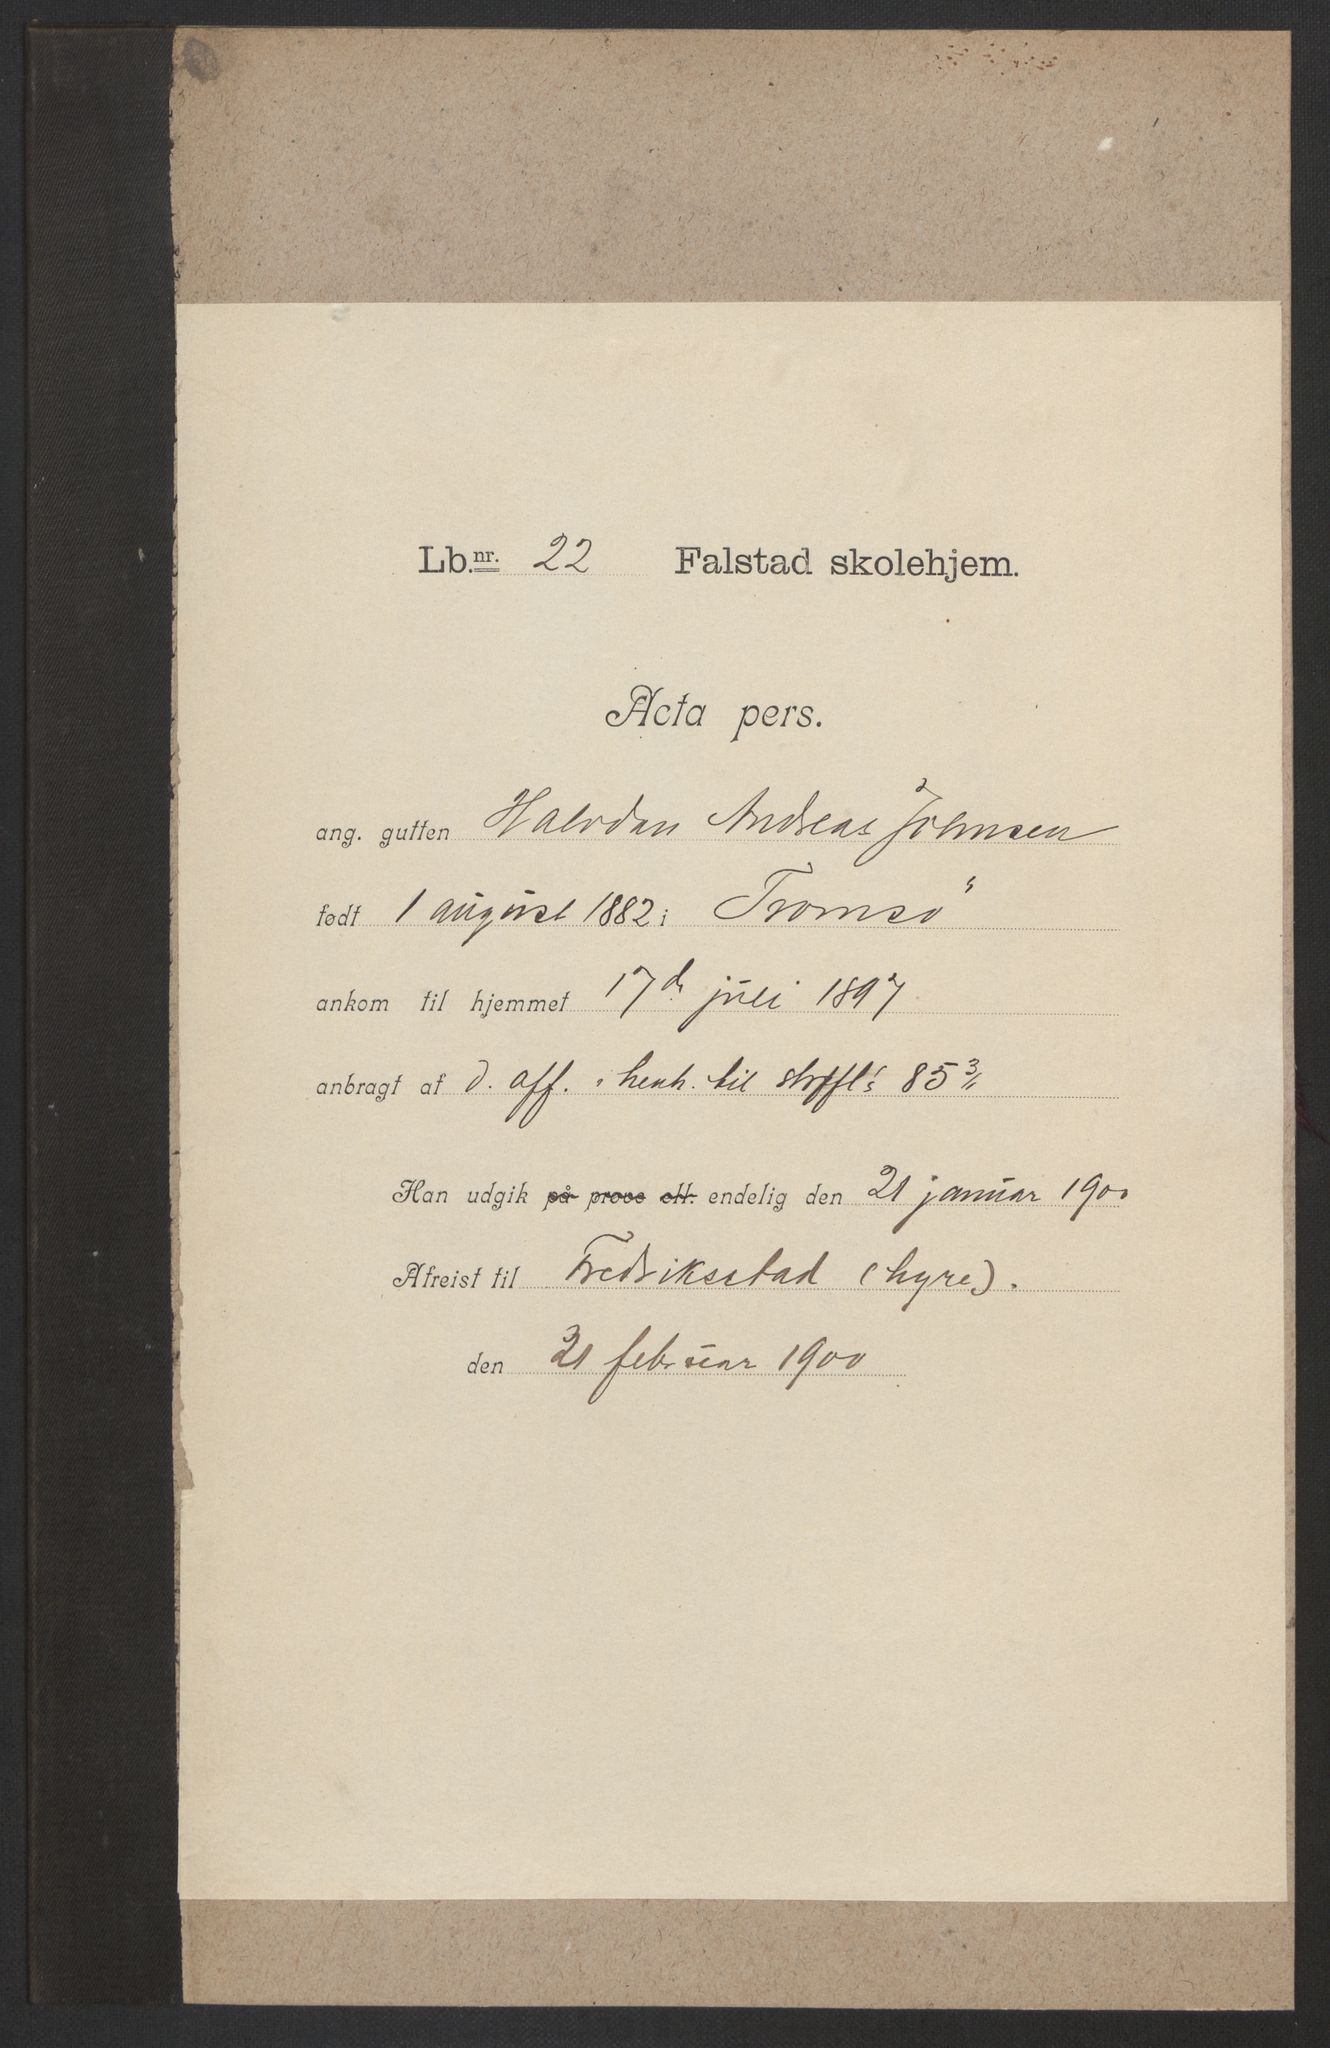 Lb.nr. 22 Falstad skolehjem.
Acta pers.
ang. gutten Halvdan Andreas Johnsen
født 1 august 1882 i Tromsö
ankom til hjemmet 17de juli 1897
anbragt af d. off. i henh. til strfl's 85 3/
Han udgik på prøve ell. endelig den 21 januar 1900
Afreist til Fredriksstad (hyre).
den 21 februar 1900